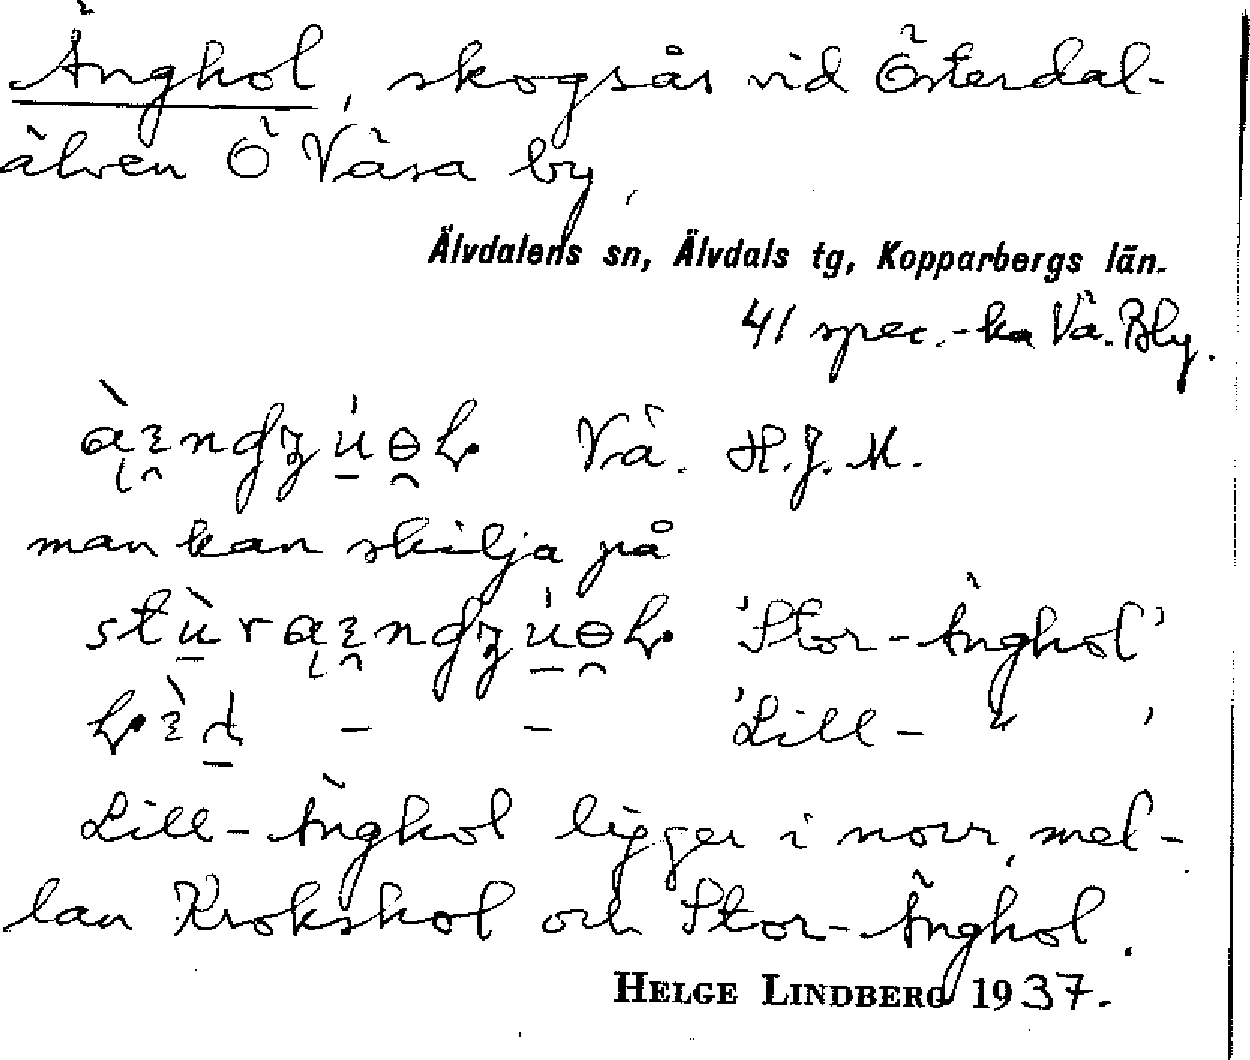 Änghol, skogsås vid Österdal-
älven Ö Väsa by,
Älvdalens sn, Älvdals tg, Kopparbergs län.
41 spec.-ka Vä. Bly.
Vä. H.J.M.
man kan skilja på
'Stor-Änghol'
'Lill- " '
Lill-Änghol ligger i norr, mel-
lan Krokskol och Stor-Änghol.
HELGE LINDBERG 1937.